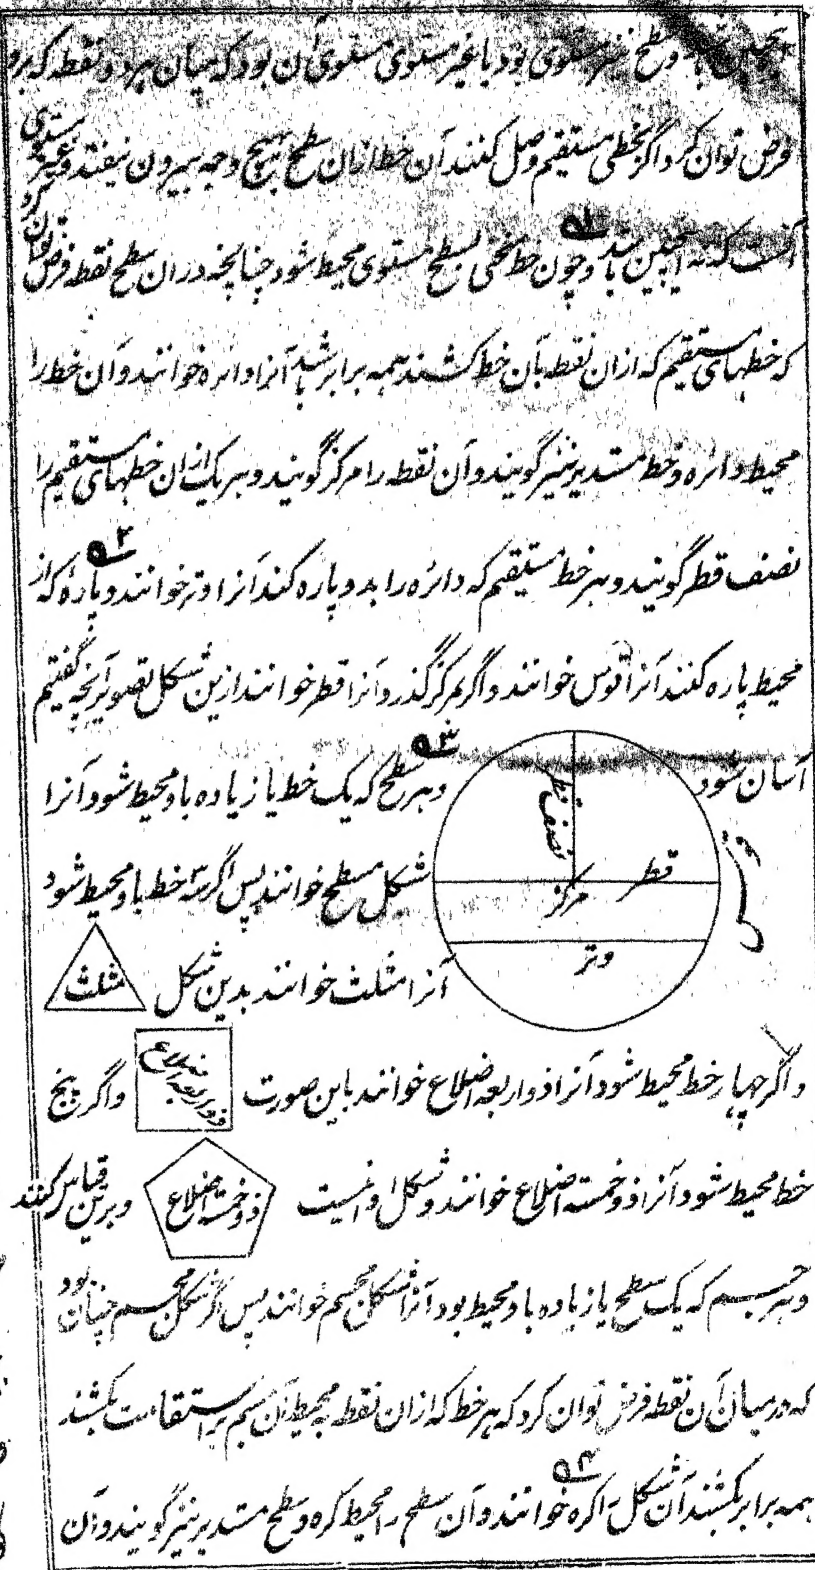 و سطح نیز مستوی بود یا غیر مستوی مستوی آن بود که میان هر دو نقطه که برو
فرض توان کرد اگر بخطی مستقیم وصل کنند آن خط ازان سطح بهیچ وجه بیرون نیفتد و غیر مستوی
آنست که نه اینچنین باشد و چون خط منحنی بسطح مستوی محیط شود چنانچه دران سطح نقطه فرض توان کرد
که خطهای مستقیم که ازان نقطه بآن خط کشند همه برابر باشد آنرا دائره خوانند و آن خط را
محیط دائره و خط مستدیر نیز گویند و آن نقطه را مرکز گویند و هر یک ازان خطهای مستقیم را
نصف قطر گویند و هر خط مستقیم که دائره را بدو پاره کند آنرا وتر خوانند و پارهٔ که از
محیط پاره کنند آنرا قوس خوانند و اگر بمرکز گذرد آنرا قطر خوانند ازین شکل تصویر آنچه گفتیم
آسان شود
و هر سطح که یک خط یا زیاده باو محیط شود آنرا
شکل مسطح خوانند پس اگر سه خط باو محیط شود
آنرا مثلث خوانند بدین شکل
مثلث
نصف قطر
قطر
مرکز
وتر
قوس
و اگر چهار خط محیط شود آنرا ذو اربعة اضلاع خوانند باین صورت
ذو اربعة اضلاع
و اگر پنج
خط محیط شود آنرا ذو خمسة اضلاع خوانند و شکل او اینست
ذو خمسة اضلاع
و برین قیاس کنند
و هر جسم که یک سطح یا زیاده باو محیط بود آنرا شکل مجسم خوانند پس اگر شکل مجسم چنان بود
که درمیان آن نقطه فرض توان کرد که هر خط که ازان نقطه به محیط آن جسم بر استقامت بکشند
همه برابر بکشند آن شکل را کره خوانند و آن سطح را محیط کره و سطح مستدیر نیز گویند و آن